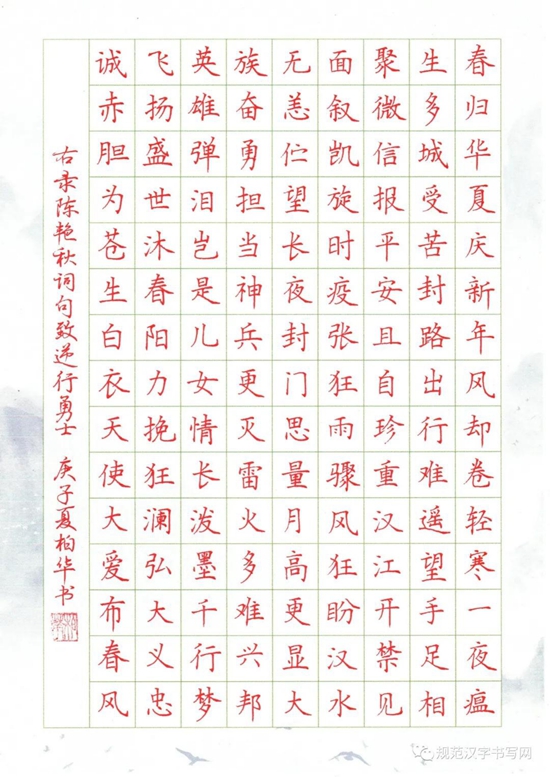 春归华夏庆新年风却卷轻寒一夜瘟
生多城受苦封路出行难遥望手足相
聚微信报平安且自珍重汉江开禁见
面叙凯旋时疫张狂雨骤风狂盼汉水
无恙伫望长夜封门思量月高更显大
族奋勇担当神兵更灭雷火多难兴邦
英雄弹泪岂是儿女情长泼墨千行梦
飞扬盛世沐春阳力挽狂澜弘大义忠
诚赤胆为苍生白衣天使大爱布春风
右录陈艳秋词句致逆行勇士 庚子夏柏华书
规范汉字书写网